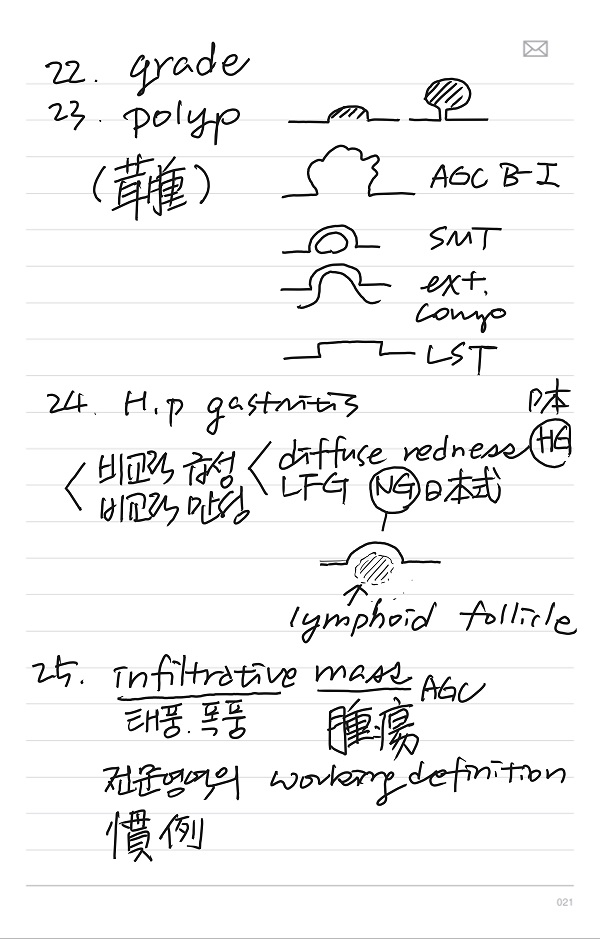 22. grade
23. polyp
(茸腫)
AGC B-I
SMT
ext.
compo
LST
24. H.p gastritis
日本
HG
비교적 급성 < diffuse redness
< 비교적 만성 LFG NG 日本式
lymphoid follicle
25. infiltrative mass AGC
태풍. 폭풍 腫瘍
전문영역의 working definition
慣例
021